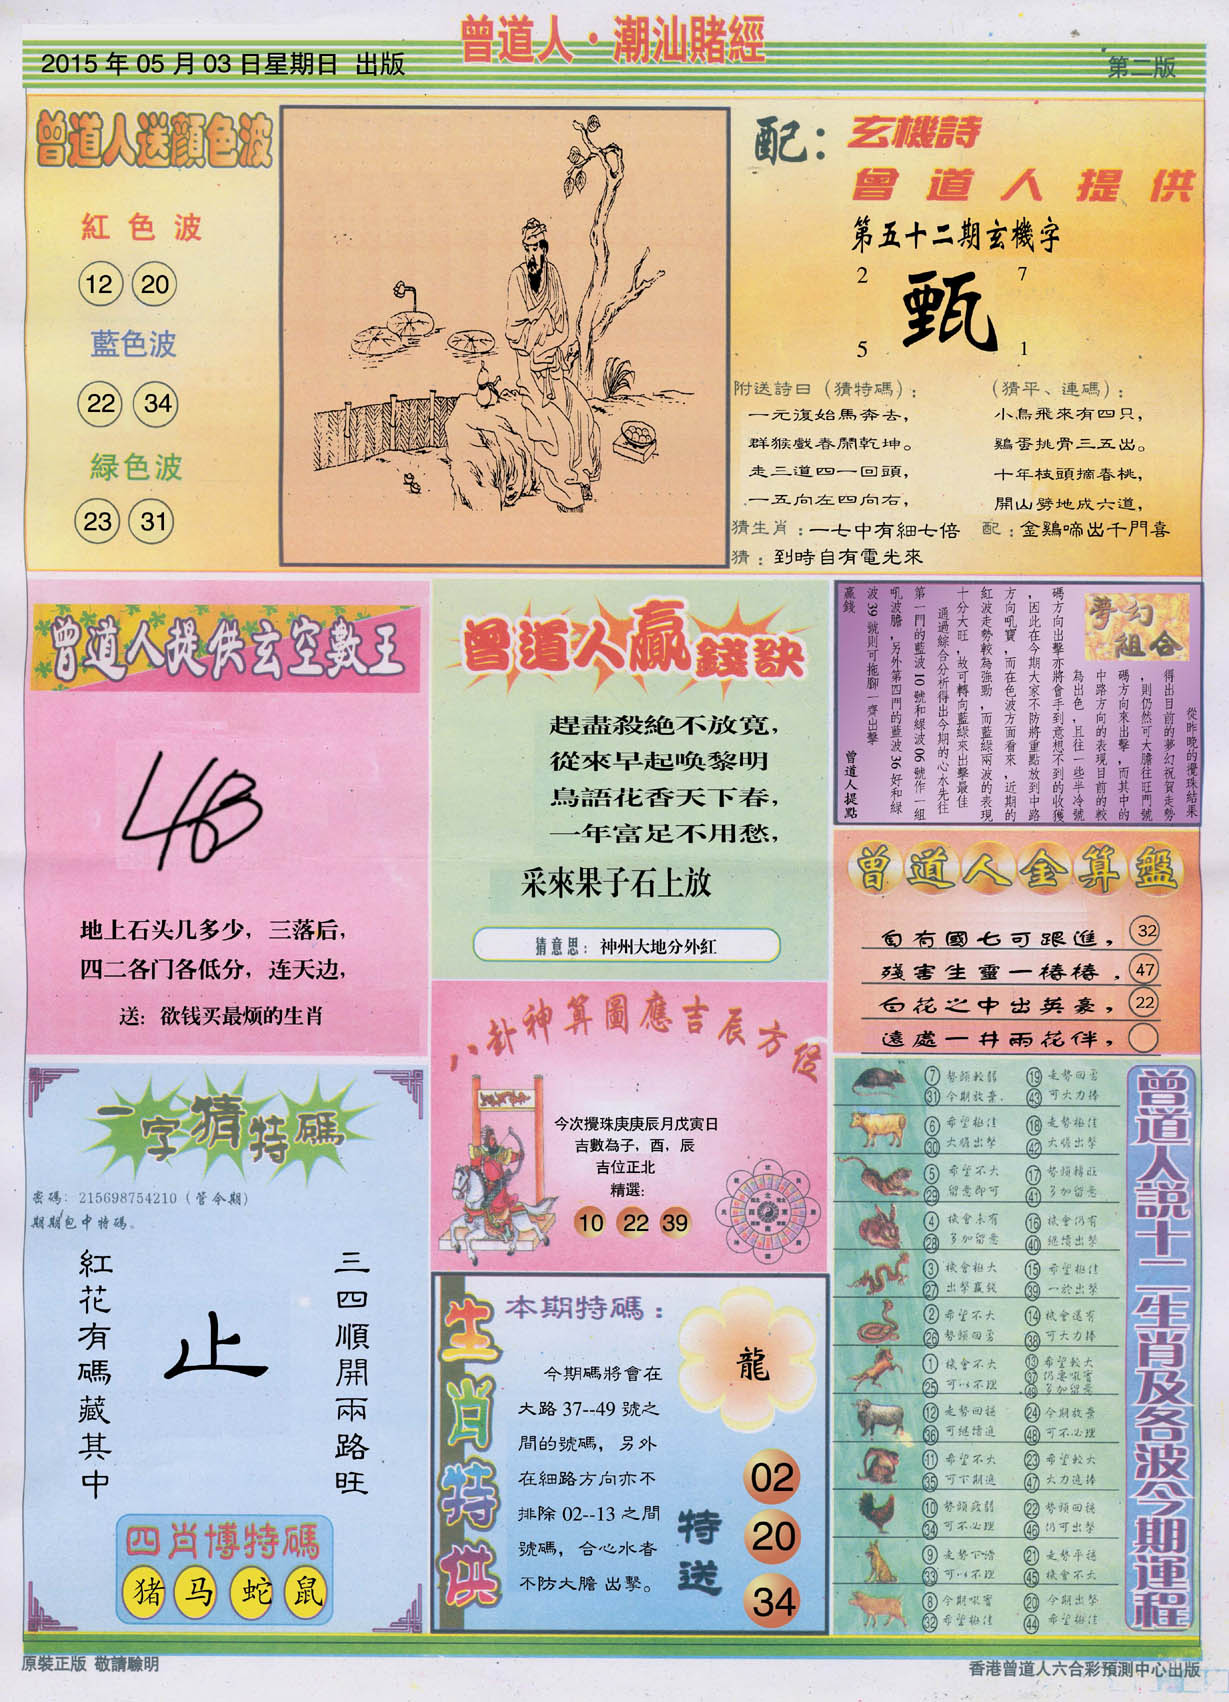 曾道人·潮汕賭經
2015 年 05 月 03 日星期日 出版
第二版
曾道人送顏色波
紅色波
12 20
藍色波
22 34
緑色波
23 31
配：玄機詩
曾道人提供
第五十二期玄機字
2 7
甄
5 1
附送詩曰（猜特碼）：
一元復始馬奔去，
群猴戲春鬧乾坤。
走三道四一回頭，
一五向左四向右，
（猜平、連碼）：
小鳥飛來有四只，
鷄蛋挑骨三五出。
十年枝頭摘春桃，
開山劈地成六道，
猜生肖：一七中有細七倍
配：金鷄啼出千門喜
猜：到時自有電光來
曾道人提供玄空數王
地上石头几多少，三落后，
四二各门各低分，连天边，
送：欲钱买最烦的生肖
曾道人贏錢訣
趕盡殺絶不放寬，
從來早起喚黎明
鳥語花香天下春，
一年富足不用愁，
采來果子石上放
猜意思：神州大地分外紅
夢幻組合
從昨晚的攪珠結果
得出目前的夢幻祝賀走勢
，則仍然可大膽往旺門號
碼方向來出擊，而其中的
中路方向的表現目前的較
為出色，且往一些半冷號
碼方向出擊亦將會手到意想不到的收獲
，因此在今期大家不防將重點放到中路
方向吼寶，而在色波方面看來，近期的
紅波走勢較為強勁，而藍緑兩波的表現
十分大旺，故可轉向藍緑來出擊最佳
通過綜合分析得出今期的心水先往
第一門的藍波 10 號和緑波 06 號作一組
吼波膽，另外第四門的藍波 36 好和緑
波 39 號則可拖腳一齊出擊
贏錢
曾道人提點
曾道人金算盤
自有國七可跟進， 32
殘害生靈一樁樁， 47
白花之中出英豪， 22
遠處一井兩花伴，
八卦神算圖應吉辰方位
今次攪珠庚庚辰月戊寅日
吉數為子，酉，辰
吉位正北
精選：
10 22 39
一字猜特碼
密碼：215698754210（管令期）
期期包中特碼。
三四順開兩路旺
止
紅花有碼藏其中
四肖博特碼
猪 马 蛇 鼠
生肖特供
本期特碼：
龍
今期碼將會在
大路 37--49 號之
間的號碼，另外
在細路方向亦不
排除 02--13 之間
號碼，合心水者
不防大膽 出擊。
特送
02
20
34
曾道人説十二生肖及各波今期運程
7 勢頭較弱 19 走勢回勇
31 今期放棄 43 可大力捧
6 希望極佳 18 走勢極佳
30 大膽出擊 42 大膽出擊
5 希望不大 17 勢頭轉旺
29 留意即可 41 多加留意
4 機會未有 16 機會仍有
28 多加留意 40 繼續出擊
3 機會極大 15 希望極佳
27 出擊贏錢 39 一於出擊
2 希望不大 14 機會還有
26 勢頭回勇 38 可大力捧
1 機會不大 13 希望較大
25 可以不理 37 仍要吼實
49 多加留意
12 走勢回穩 24 今期放棄
36 可繼續追 48 可不必理
11 希望不大 23 希望較大
35 可下期追 47 大力追捧
10 勢頭疲弱 22 勢頭回穩
34 可不必理 46 仍可出擊
9 走勢下滑 21 走勢平穩
33 可以不理 45 機會不大
8 今期吼實 20 今期出擊
32 希望極佳 44 希望極佳
原裝正版 敬請驗明
香港曾道人六合彩預測中心出版